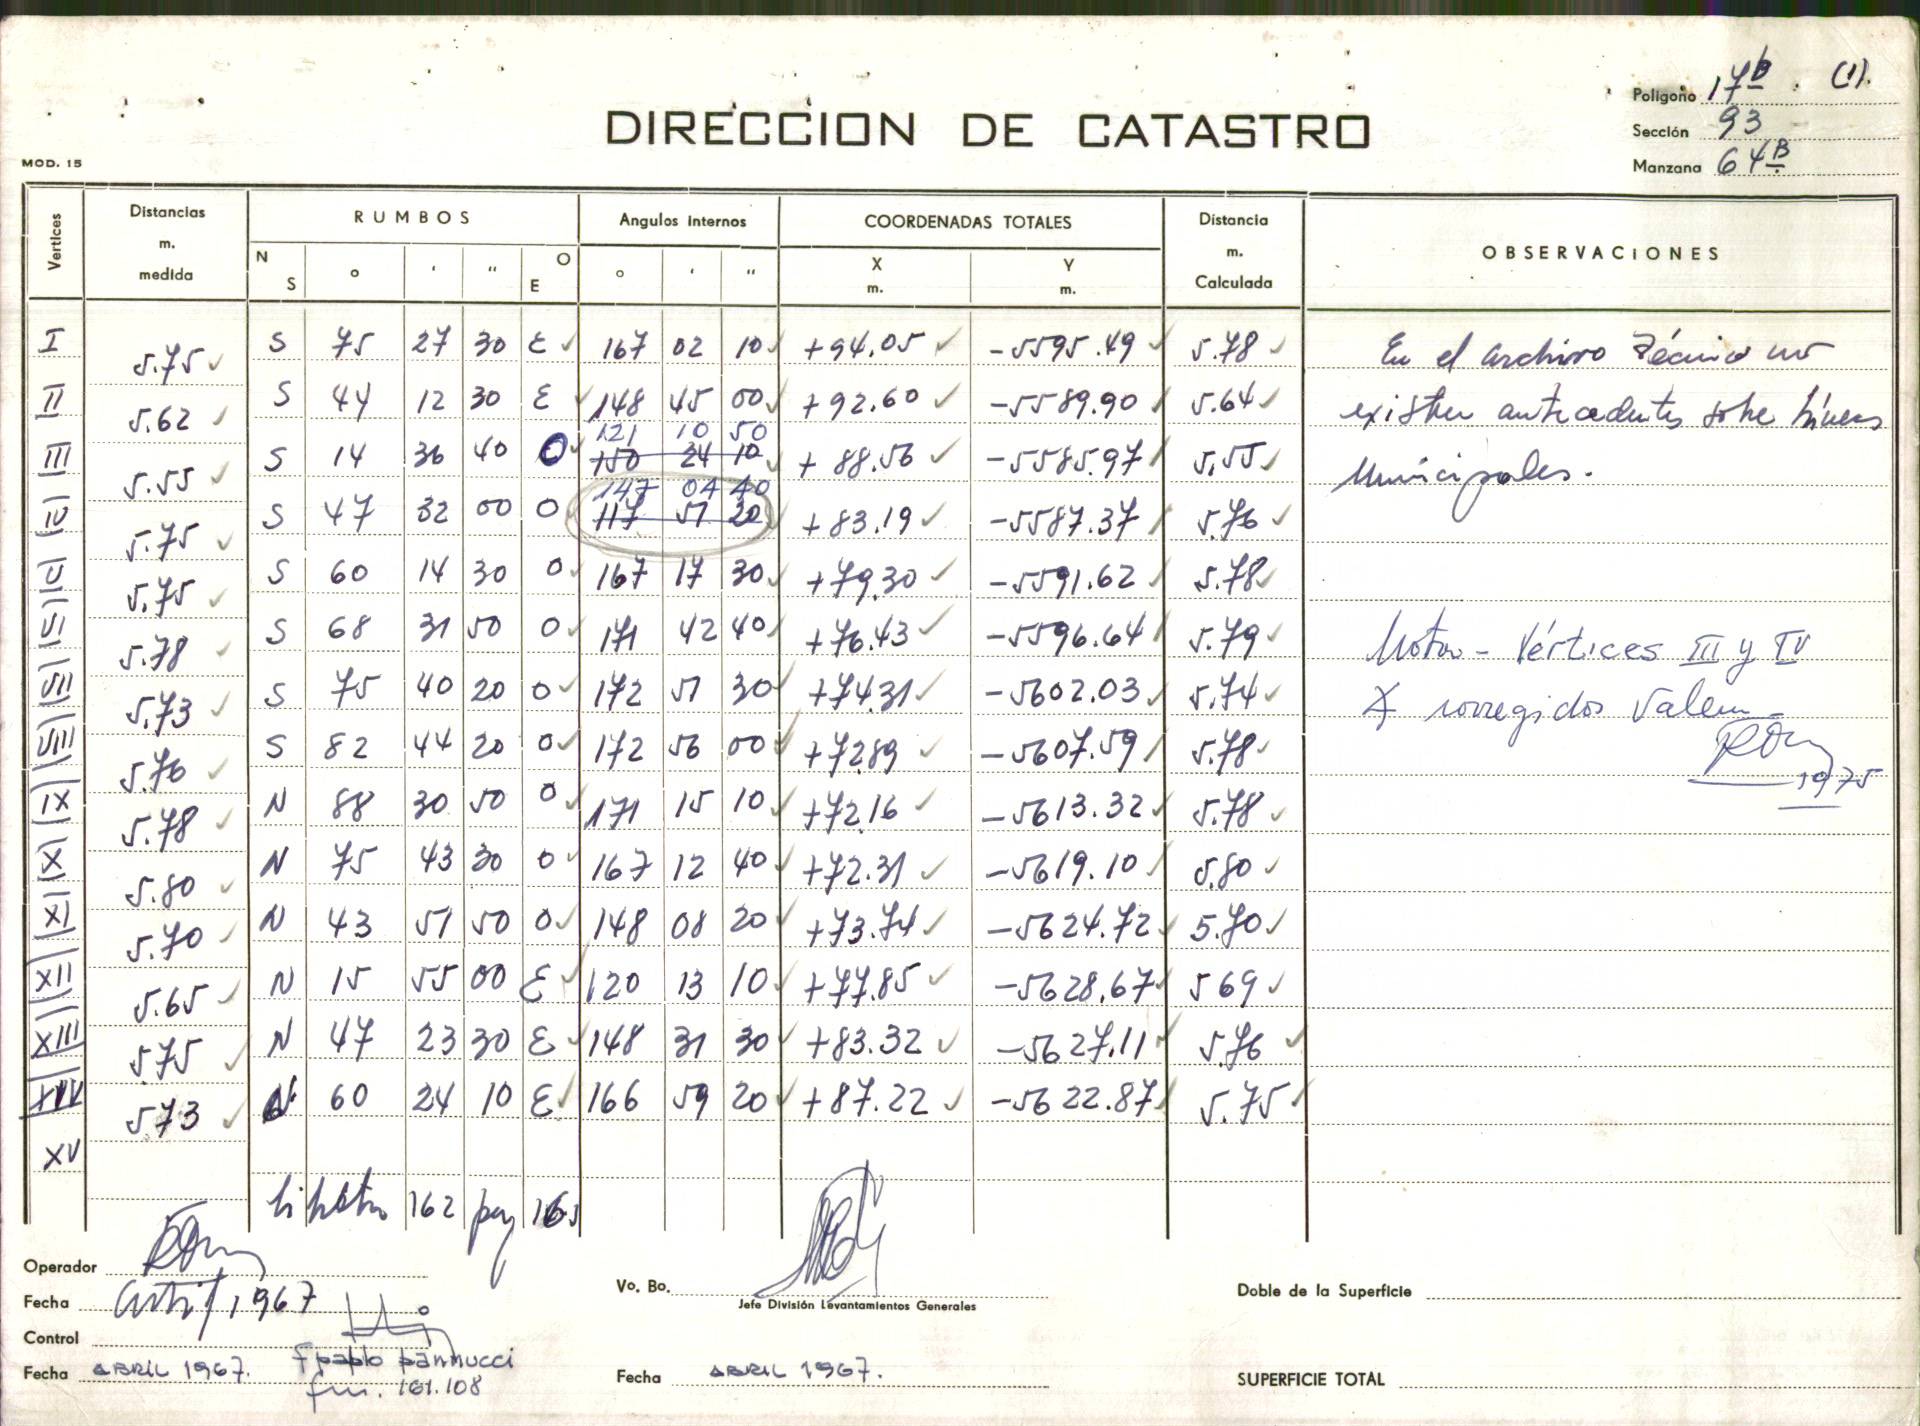 Polígono 17B (1).
DIRECCION DE CATASTRO
Sección 93
MOD. 15
Manzana 64B
Vertices Distancias m. medida RUMBOS Angulos internos COORDENADAS TOTALES Distancia m. Calculada OBSERVACIONES
N S ° ' " O E ° ' " X m. Y m.
I 5.75 S 75 27 30 E 167 02 10 +94.05 -5595.49 5.78 En el archivo Técnico no
II 5.62 S 44 12 30 E 148 45 00 +92.60 -5589.90 5.64 existen antecedentes sobre líneas
121 10 50
III 5.55 S 14 36 40 O 150 24 10 +88.56 -5585.97 5.55 Municipales.
147 04 40
IV 5.75 S 47 32 00 O 117 51 20 +83.19 -5587.37 5.76
V 5.75 S 60 14 30 O 167 17 30 +79.30 -5591.62 5.78
VI 5.78 S 68 31 50 O 171 42 40 +76.43 -5596.64 5.79 Nota - Vértices III y IV
VII 5.73 S 75 40 20 O 172 51 30 +74.31 -5602.03 5.74 corregidos Valen
VIII 5.76 S 82 44 20 O 172 56 00 +72.89 -5607.59 5.78 1975
IX 5.78 N 88 30 50 O 171 15 10 +72.16 -5613.32 5.78
X 5.80 N 75 43 30 O 167 12 40 +72.31 -5619.10 5.80
XI 5.70 N 43 51 50 O 148 08 20 +73.74 -5624.72 5.70
XII 5.65 N 15 55 00 E 120 13 10 +77.85 -5628.67 5.69
XIII 5.75 N 47 23 30 E 148 31 30 +83.32 -5627.11 5.76
XIV 5.73 N 60 24 10 E 166 59 20 +87.22 -5622.87 5.75
XV
162 163
Operador
Vo. Bo.
Doble de la Superficie
Fecha 1967
Jefe División Levantamientos Generales
Control
Pablo Pannucci
Fecha ABRIL 1967.
Fecha ABRIL 1967.
SUPERFICIE TOTAL
161.108